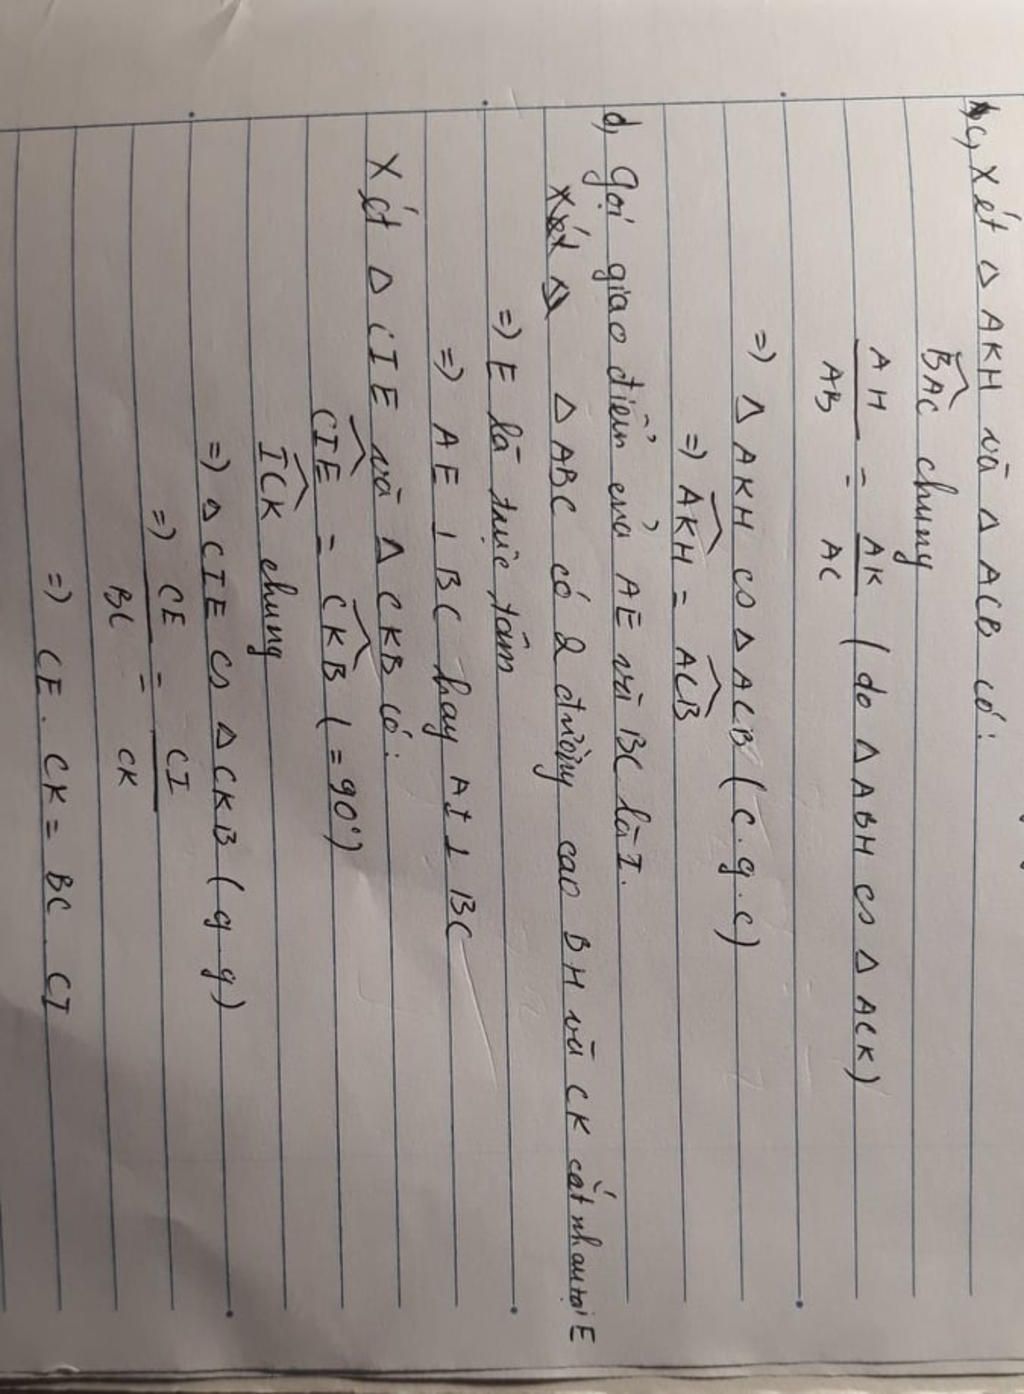 c, Xét △ AKH và △ ACB có:
BAC chung
AH/AB = AK/AC (do △ ABH ∽ △ ACK)
=) △ AKH ∽ △ ACB (c.g.c)
=) AKH = ACB
d, Gọi giao điểm của AE và BC là I.
△ ABC có 2 đường cao BH và CK cắt nhau tại E
=) E là trực tâm
=) AE ⊥ BC hay AI ⊥ BC
Xét △ CIE và △ CKB có:
CIE = CKB (= 90°)
ICK chung
=) △ CIE ∽ △ CKB (g g)
=) CE/BC = CI/CK
=) CE. CK = BC. CI